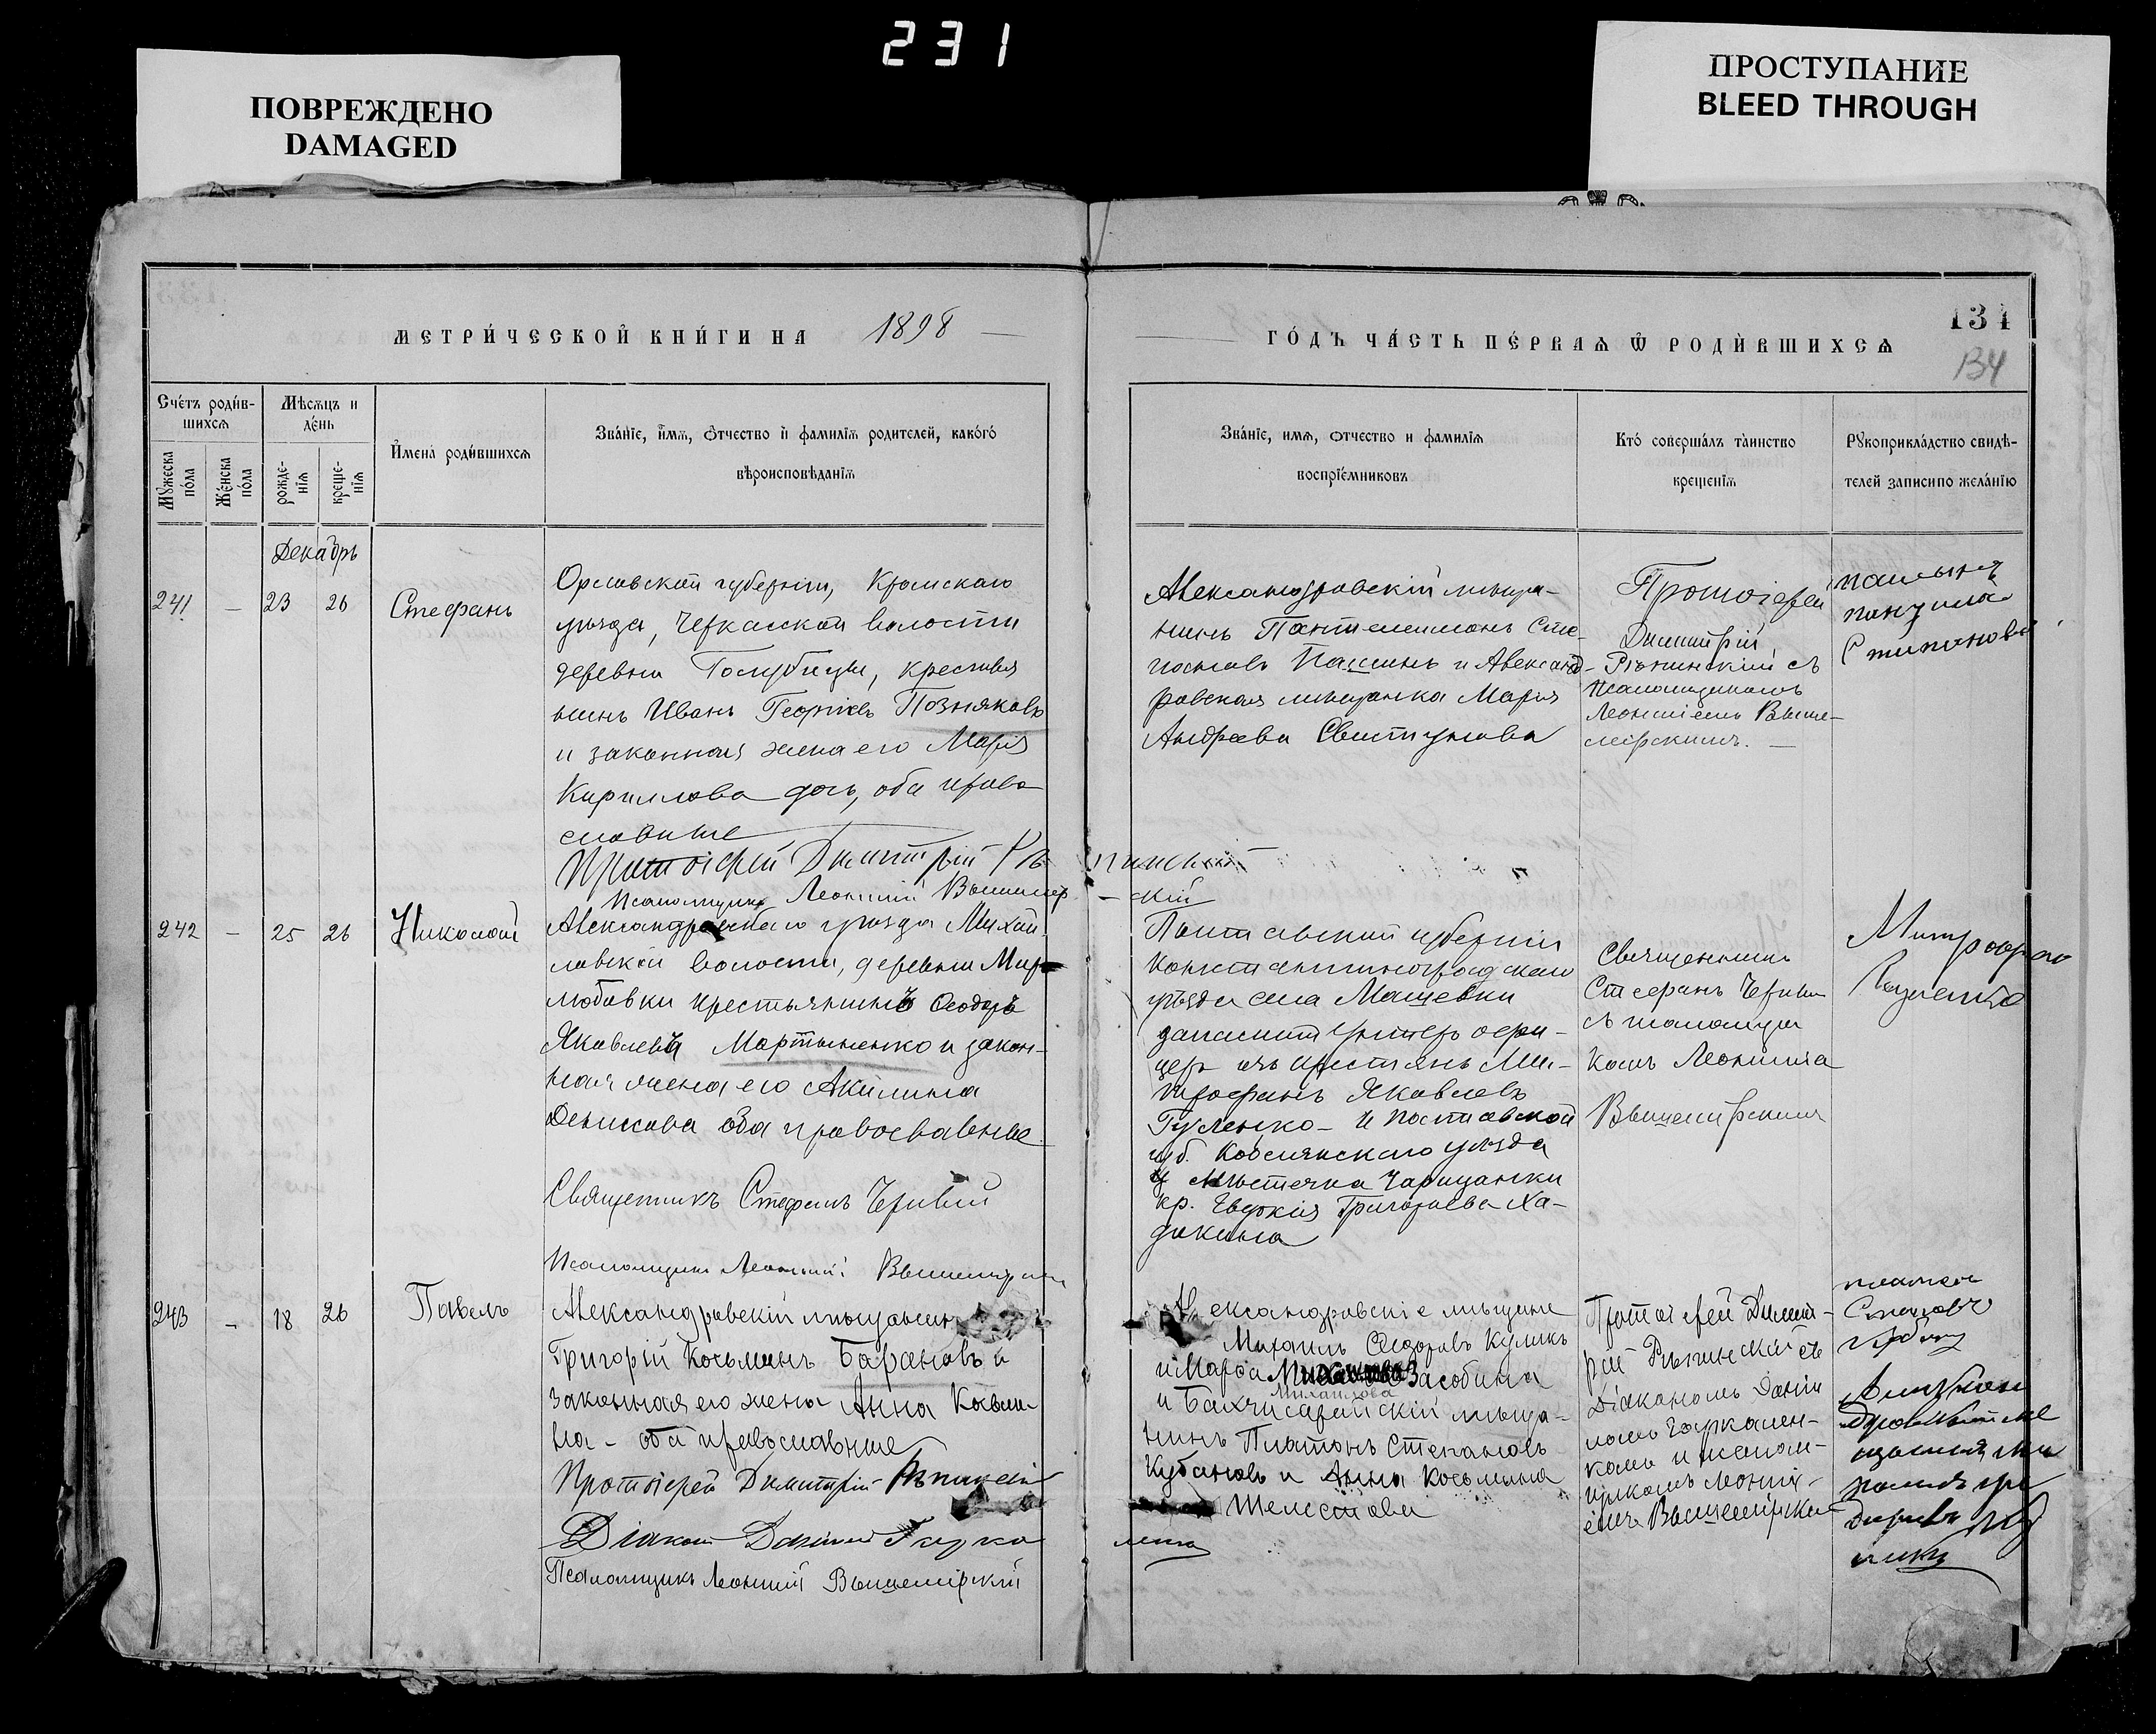 231
ПОВРЕЖДЕНО
DAMAGED
ПРОСТУПАНИЕ
BLEED THROUGH
МЕТРИ́ЧЕСКОЙ КНИ́ГИ НА 1898
ГО́ДЪ ЧА́СТЬ ПЕ́РВАѦ Ѿ РОДИ́ВШИХСѦ
134
134
Сче́тъ роди́в-
шихсѧ
Мꙋжеска
по́ла
Же́нска
по́ла
Мѣ́сѧцъ и
де́нь
рожде-
нїѧ
креще-
нїѧ
И҆мена̀ роди́вшихсѧ
Зва́нїе, и҆́мѧ, ѻ҆́тчество и҆ фамилїѧ родителей, како́гѡ́
вѣроисповѣ́данїѧ
Зва́нїе, имѧ, отчество и фамилїѧ
воспрїе́мниковъ
Кто́ соверша́лъ та́инство
креще́нїѧ
Рꙋкоприкла́дство свидѣ́-
телей записи по жела́нїю
Декабрь
241 — 23 26 Стефанъ
Орловской губерніи, Кромскаго
уѣзда, Черкасской волости
деревни Голубицы, крестья
нинъ Иванъ Георгіевъ Позняковъ
и законная жена его Марія
Кириллова дочь, оба право
славные
Протоіерей Димитрій Рѣпинскій
Псаломщикъ Леонтій Вышемірскій
Александровскій мѣща-
нинъ Пантелеимонъ Сте-
пановъ Пашинъ и Александ-
ровская мѣщанка Марія
Андреева Свистунова
Протоіерей
Димитрій
Рѣпинскій съ
Псаломщикомъ
Леонтіемъ Выше-
мірскимъ. —
242 — 25 26 Николай
Александровскаго уѣзда Михай
ловской волости, деревни Миро
любовки крестьянинъ Ѳеодоръ
Яковлевъ Мартыненко и закон-
ная жена его Акилина
Денисова оба православные
Священникъ Стефанъ Чернвій
Псаломщикъ Леонтій Вышемірскій
Полтавской губерніи
Константиноградскаго
уѣзда села Машевки
запасной унтеръ офи-
церъ изъ крестьянъ Ми-
трофанъ Яковлевъ
Гуленко — и Полтавской
губ. Кобелякскаго уѣзда
мѣстечка Царичанки
кр. Евдокія Григорьева Ха-
Священникъ
Стефанъ
съ псаломщи
комъ Леонтіемъ
Вышемірскимъ
Митрофанъ
243 — 18 26 Павелъ
Александровскій мѣщанинъ
Григорій Косьминъ Барановъ и
законная его жена Анна Косьми-
на — оба православные
Протоіерей Димитрій Рѣпинскій
Діаконъ Даніилъ Гаркаленко
Псаломщикъ Леонтій Вышемірскій
Александровскіе мѣщане
Михаилъ Ѳеодоровъ Куликъ
и Марѳа Засобина
Михайлова
и Бахчисарайскій мѣща-
нинъ Платонъ Степановъ
Кубановъ и Анна Косьмина
Шелестова
Протоіерей Димит-
рій Рѣпинскій съ
Діакономъ Даніи
ломъ Гаркален-
комъ и псалом-
щикомъ Леонті-
емъ Вышемірскимъ